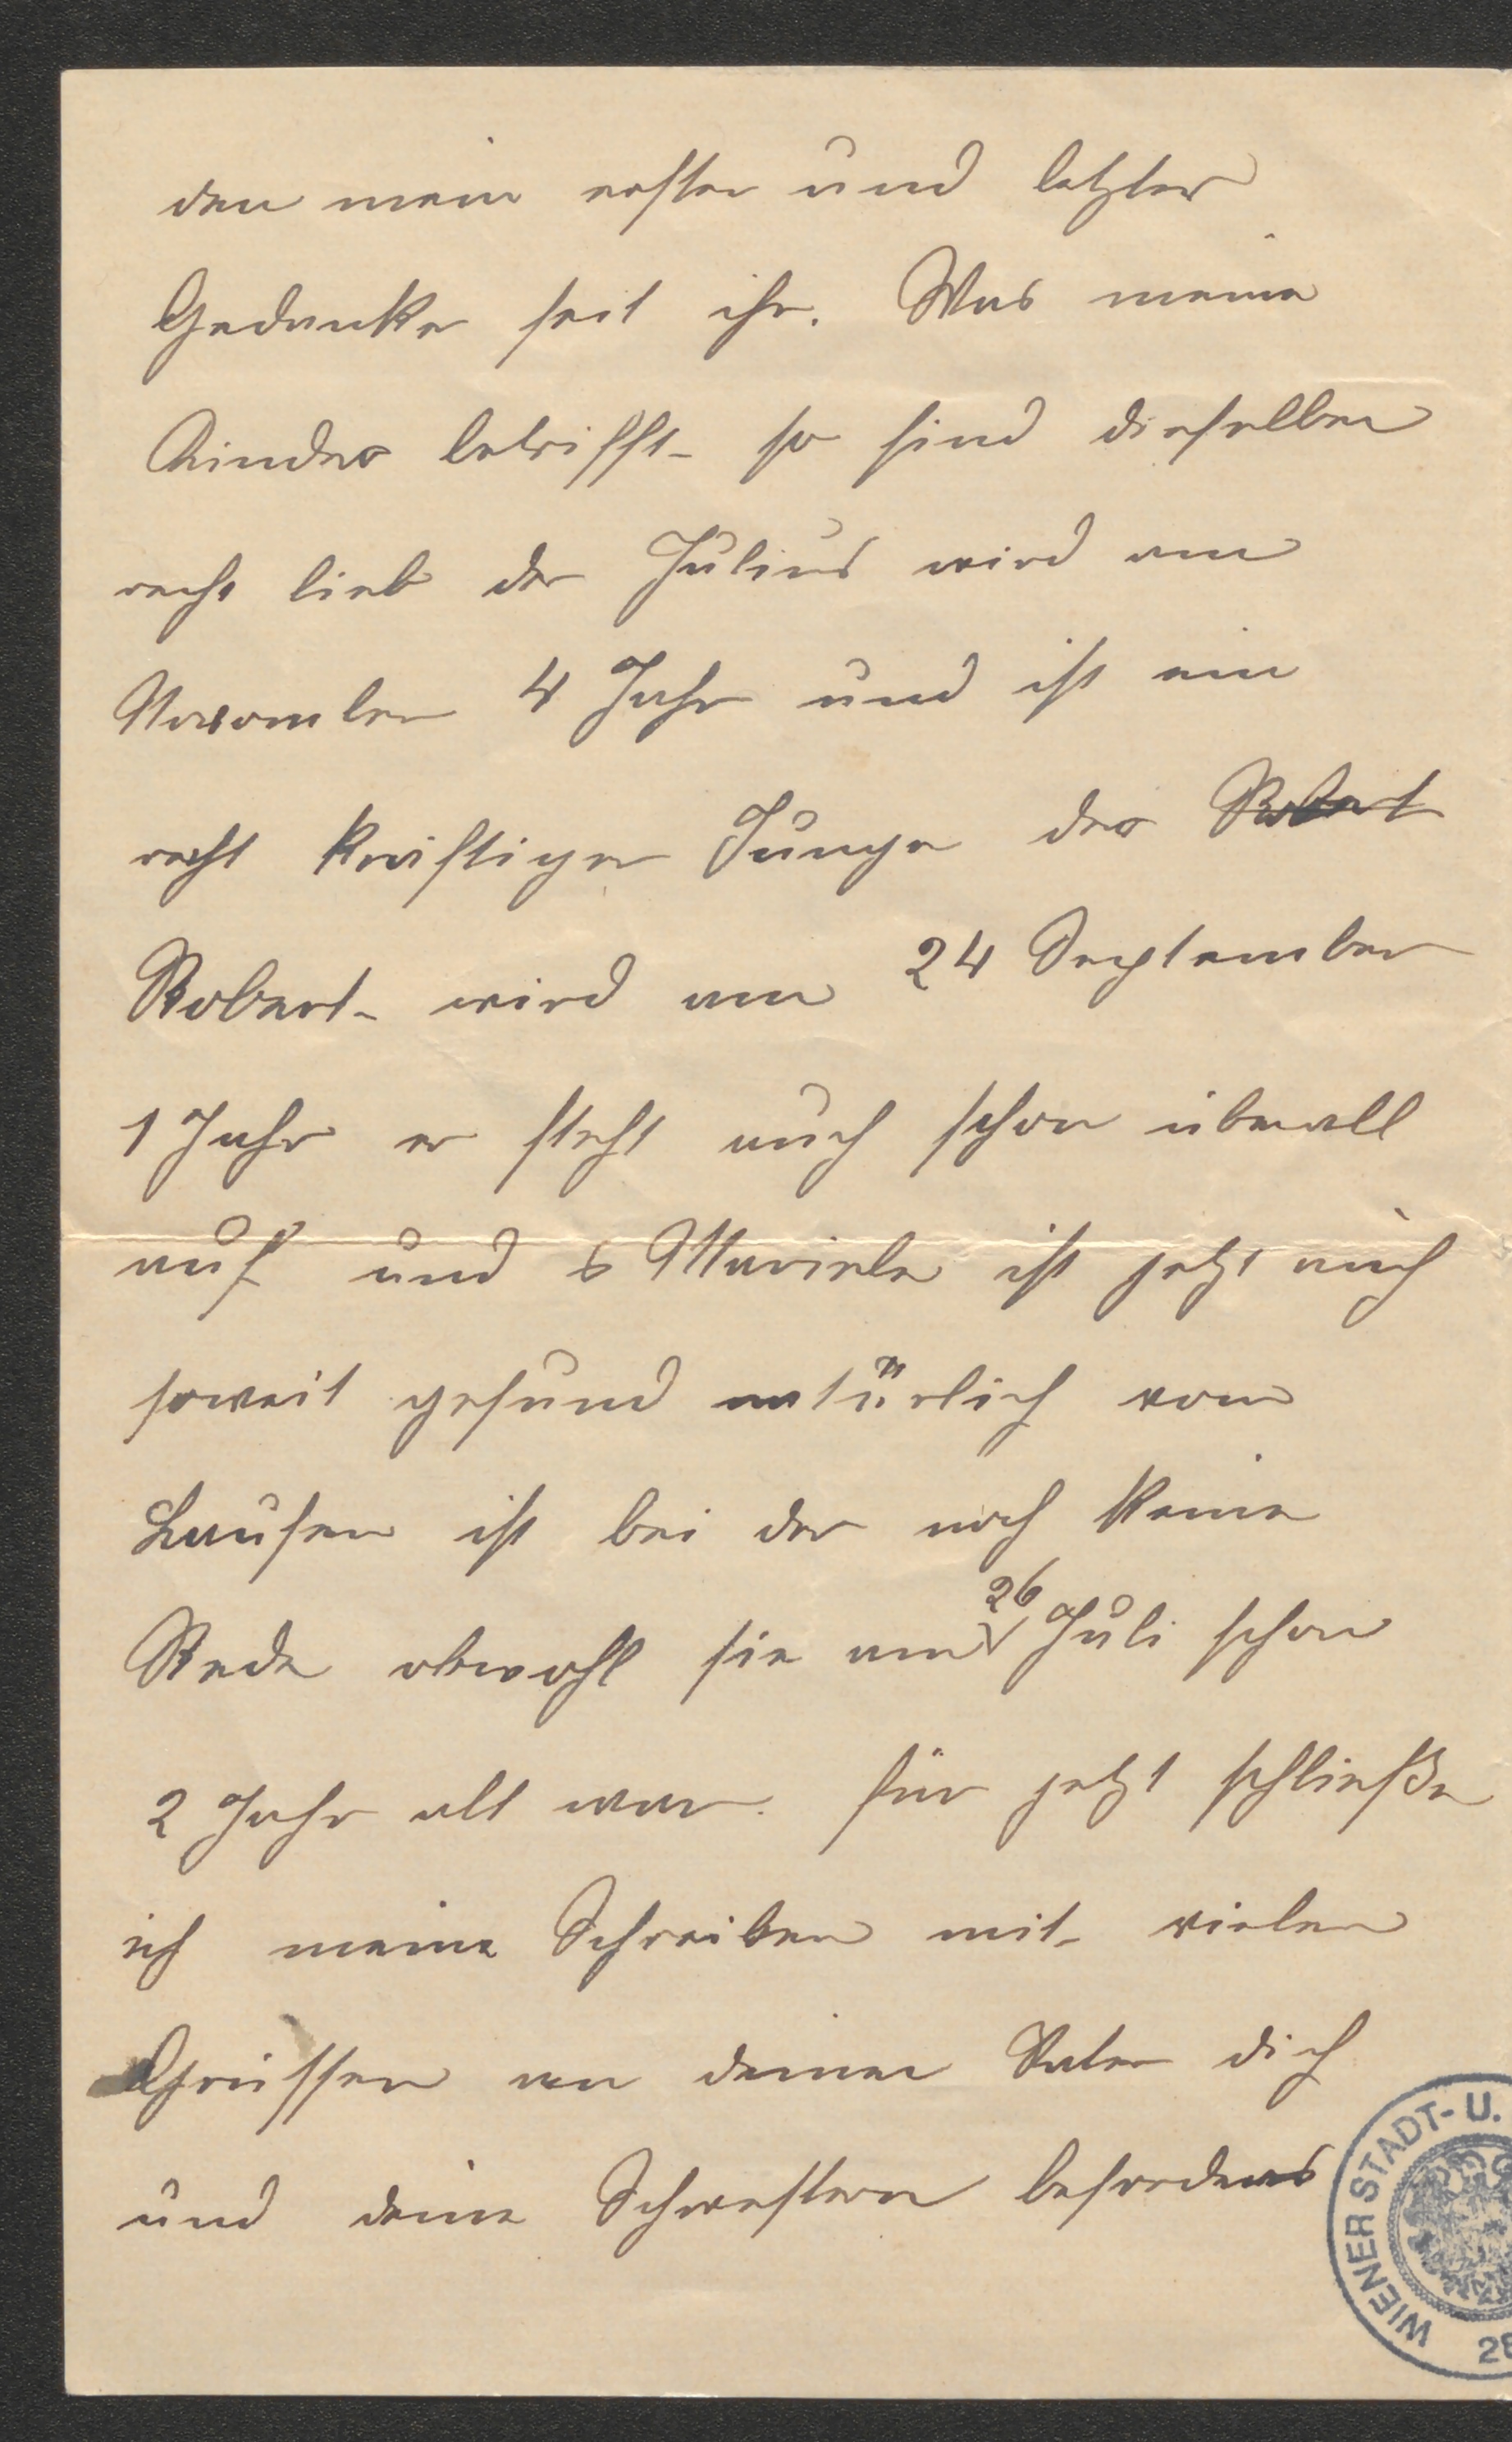 den mein erster und letzter
Gedanke seit ihr. Was meine
Kinder betrifft so sind dieselben
recht lieb der Julius wird am
November 4 Jahr und ist ein
recht kräftiger Junge der Robert
Robert wird am 24 September
1 Jahr er steht auch schon überall
auf und s Mariele ist jetzt auch
soweit gesund natürlich vom
Laufen ist bei der noch keine
Rede obwohl sie am 26 Juli schon
2 Jahr alt war. für jetzt schließe
ich meine Schreiben mit vielen
Grüssen an deinen Vater dich
und deine Schwestern
WIENER STADT- U.
28